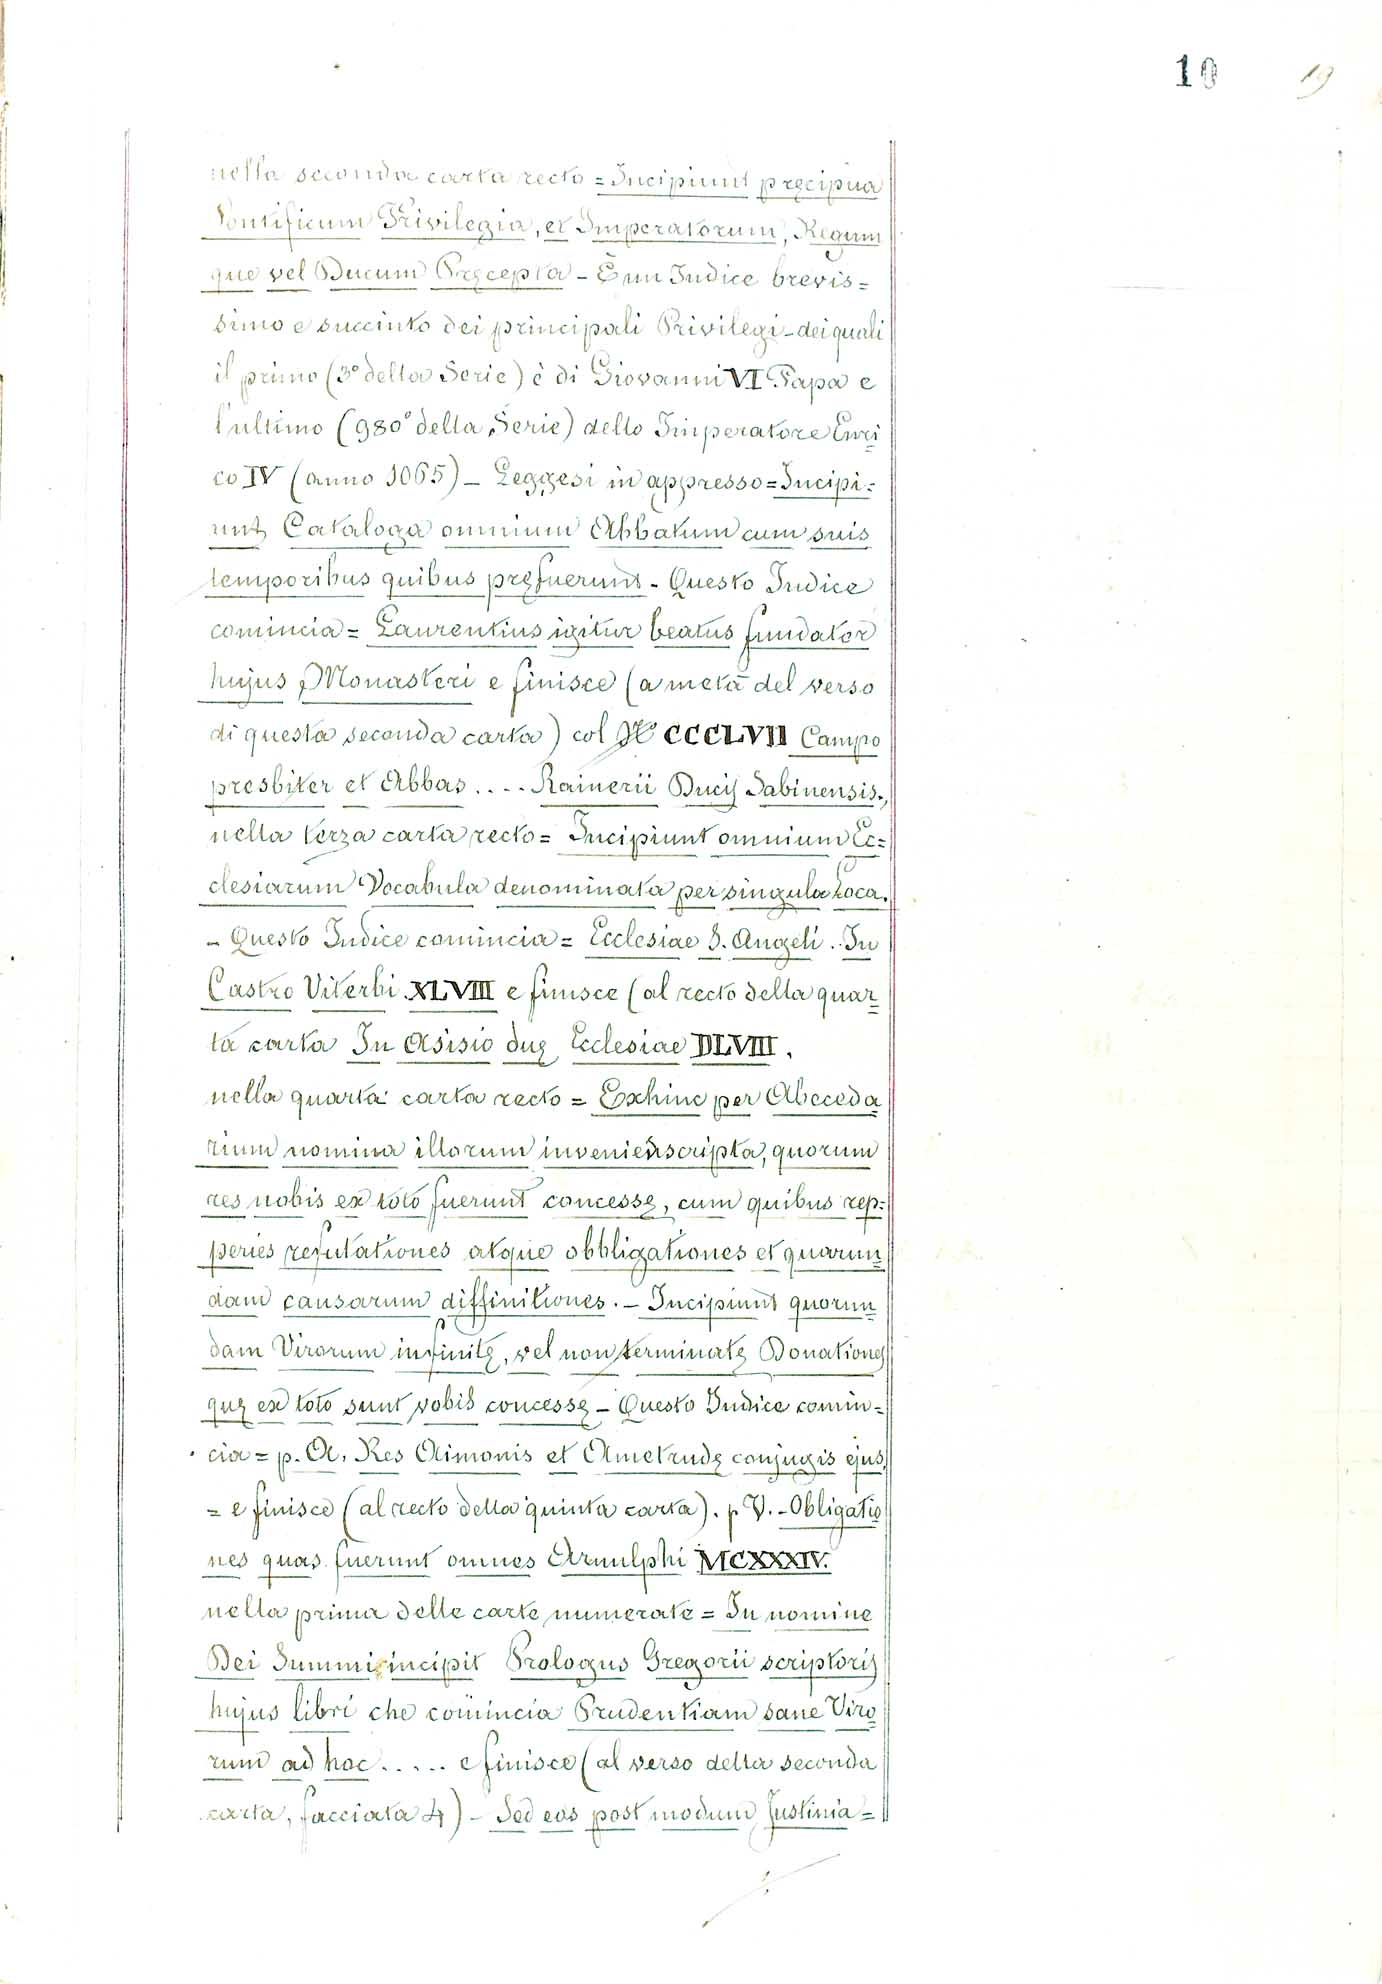 10 19
nella seconda carta recto = Incipiunt pręcipua
Pontificum Privilegia, et Imperatorum, Regum
que vel Ducum Pręcepta - È un Indice brevis=
simo e succinto dei principali Privilegi - dei quali
il primo (3° della Serie) è di Giovanni VI Papa e
l'ultimo (980° della Serie) dello Imperatore Enri=
co IV (anno 1065) - Leggesi in appresso = Incipi=
unt Cataloga omnium Abbatum cum suis
temporibus quibus pręfuerunt - Questo Indice
comincia = Laurentius igitur beatus fundator
hujus Monasteri e finisce (a metà del verso
di questa seconda carta) col N° CCCLVII Campo
presbiter et Abbas .... Rainerii Ducis Sabinensis.,
nella terza carta recto = Incipiunt omnium Ec=
clesiarum Vocabula denominata per singula Loca.
- Questo Indice comincia = Ecclesiae S. Angeli .. In
Castro Viterbi XLVIII e finisce (al recto della quar=
ta carta In Asisio duę Ecclesiae DLVIII.
nella quarta carta recto = Exhinc per Abeceda=
rium nomina illorum invenies scripta, quorum
res nobis ex toto fuerunt concessę, cum quibus rep=
peries refutationes atque obbligationes et quarun=
dam causarum diffinitiones. - Incipiunt quorun=
dam Virorum infinitę, vel non terminatę Donationes
quę ex toto sunt nobis concessę - Questo Indice comin=
cia = p. A. Res Aimonis et Ametrudę conjugis ejus.
= e finisce (al recto della quinta carta). p V. - Obligatio=
nes quas fuerunt omnes Arnulphi MCXXXIV.
nella prima delle carte numerate = In nomine
Dei Summi incipit Prologus Gregorii scriptoris
hujus libri che comincia Prudentiam sane Viro=
rum ad hoc ..... e finisce (al verso della seconda
carta, facciata 4) - Sed eos post modum Justinia=